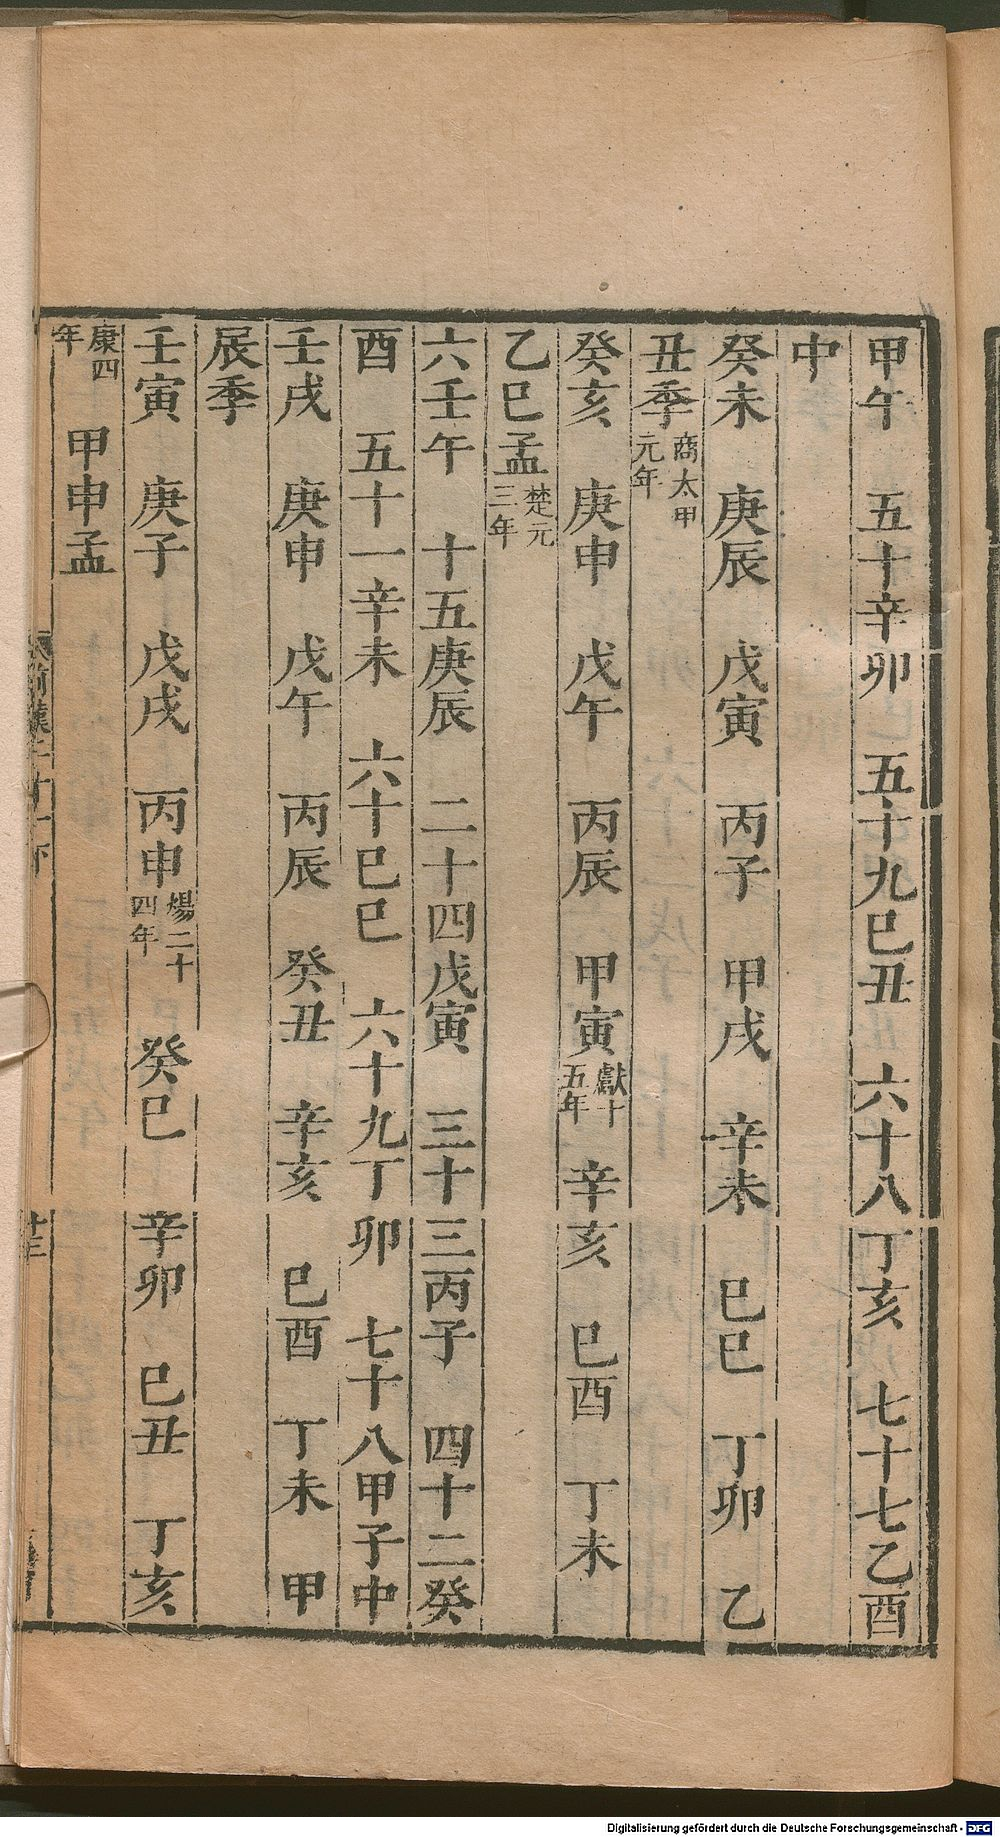 甲午　五十辛卯　五十九巳丑　六十八丁亥　七十七乙酉
中
癸未　庚辰　戊寅　丙子　甲戌　辛未　巳巳　丁卯　乙
丑季商太甲元年
癸亥　庚申　戊午　丙辰　甲寅獻十五年　辛亥　巳酉　丁未
乙巳孟楚元三年
六壬午　十五庚辰　二十四戊寅　三十三丙子　四十二癸
酉　五十一辛未　六十巳巳　六十九丁卯　七十八甲子中
壬戌　庚申　戊午　丙辰　癸丑　辛亥　巳酉　丁未　甲
辰季
壬寅　庚子　戊戌　丙申煬二十四年　癸巳　辛卯　巳丑　丁亥
康四年　甲申孟
前漢二十一下
十三
Digitalisierung gefördert durch die Deutsche Forschungsgemeinschaft - DFG